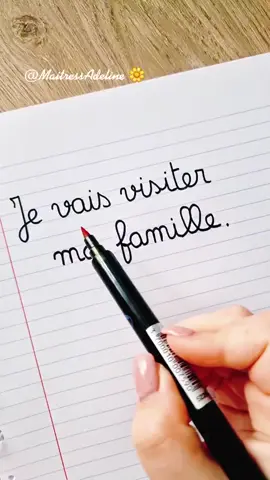 @MaitressAdeline 🌼
Je vais visiter
ma famille.